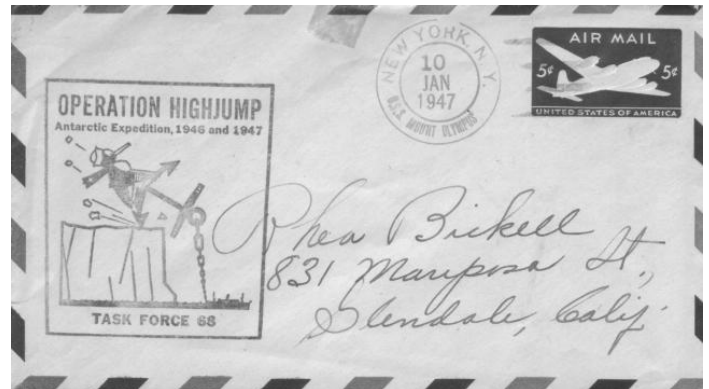 OPERATION HIGHJUMP
Antarctic Expedition, 1946 and 1947
TASK FORCE 68
NEW YORK, N. Y.
10
JAN
1947
U.S.S. MOUNT OLYMPUS
AIR MAIL
5¢ 5¢
UNITED STATES OF AMERICA
Rhea Bickell
831 Mariposa St.,
Glendale, Calif.